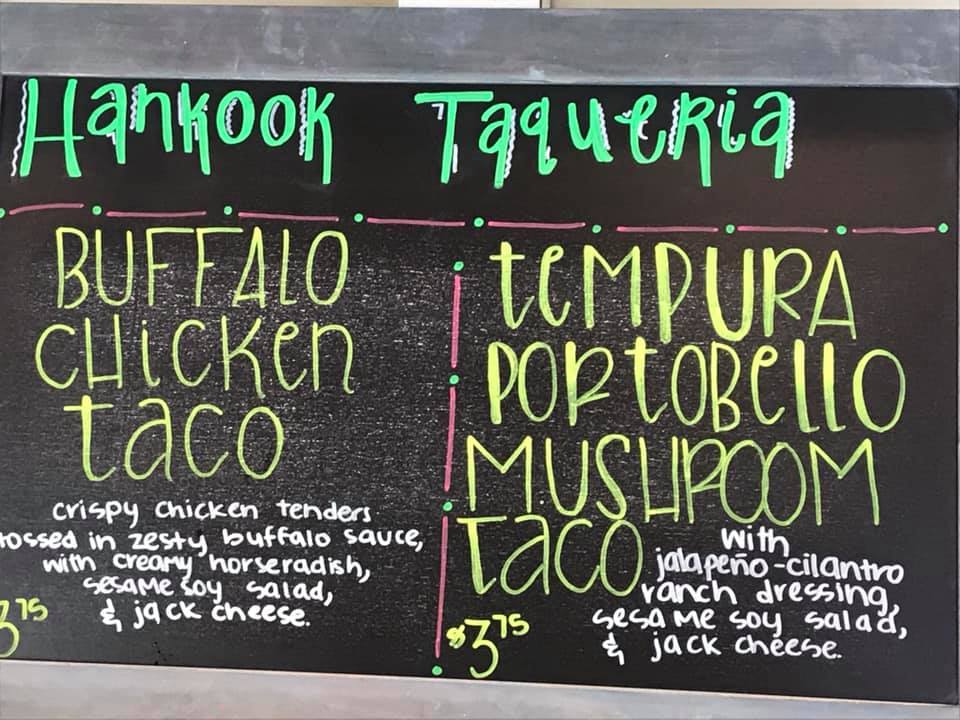 Hankook Taqueria
BUFFALO
CHICKEN
taco
crispy chicken tenders
tossed in zesty buffalo sauce,
with creamy horseradish,
sesame soy salad,
& jack cheese.
3 75
TEMPURA
PORTOBELLO
MUSHROOM
TACO
with
jalapeño-cilantro
ranch dressing,
sesame soy salad,
& jack cheese.
$3 75